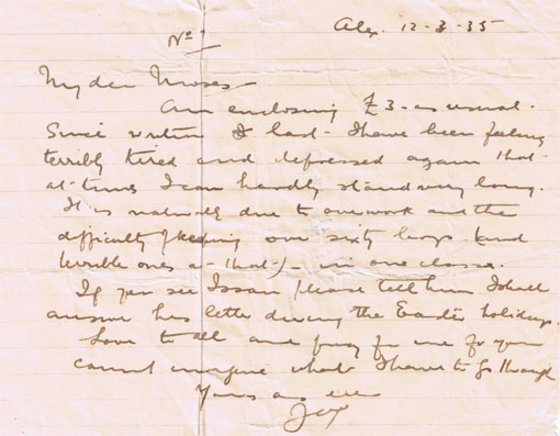 Alex. 12-3-35
No 1
My dear Moses
Am enclosing £3 - as usual.
Since writing last - I have been feeling
terribly tired and depressed again that
at times I can hardly stand very long.
It is naturally due to overwork and the
difficulty of keeping over sixty boys - (and
terrible ones at that) - in one classe.
If you see Issa please tell him I shall
answer his letter during the Easter holidays.
Love to all and pray for me for you
cannot imagine what I have to go through
Yours as ever